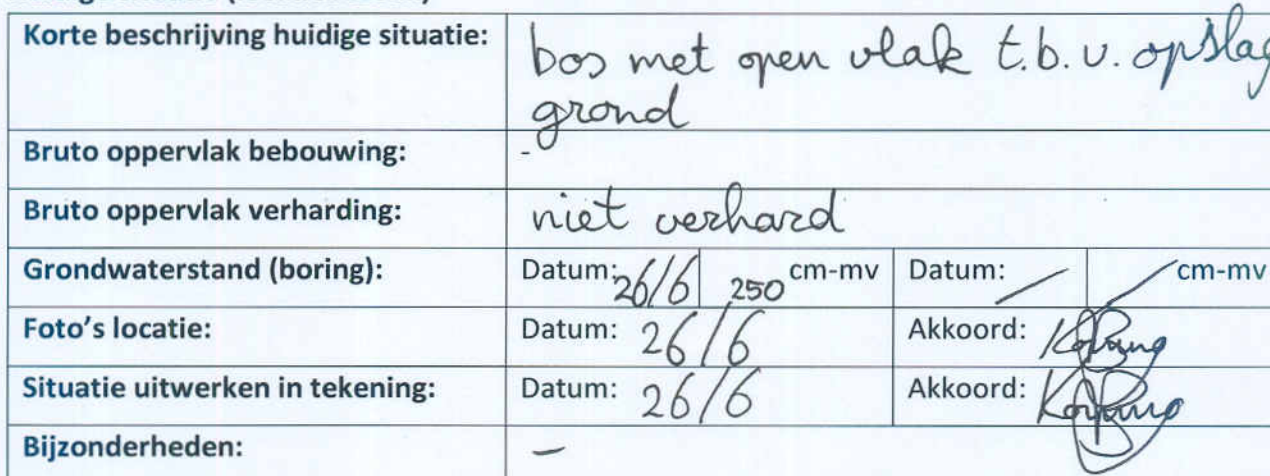 Korte beschrijving huidige situatie: bos met open vlak t.b.v. opslag
grond
Bruto oppervlak bebouwing: -
Bruto oppervlak verharding: niet verhard
Grondwaterstand (boring): Datum: 26/6 250 cm-mv Datum: / / cm-mv
Foto's locatie: Datum: 26/6 Akkoord:
Situatie uitwerken in tekening: Datum: 26/6 Akkoord:
Bijzonderheden: -